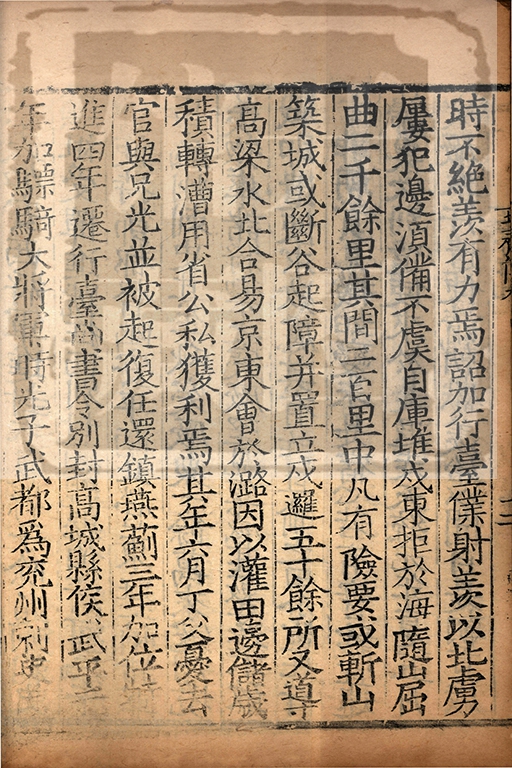 時不絶羨有力焉詔加行臺僕射羨以北虜
屢犯邊湏備不虞自庫堆戍東拒於海隨山屈
曲二千餘里其間二百里中凡有險要或斬山
築城或斷谷起障并置立戍邏五十餘所又導
高梁水北合易京東會於潞因以灌田邊儲歲
積轉漕用省公私獲利焉其年六月丁父憂去
官與兄光並被起復任還鎮燕薊三年加位特
進四年遷行臺尚書令别封高城縣侯武平元
年加驃騎大將軍時光子武都爲兖州刺史